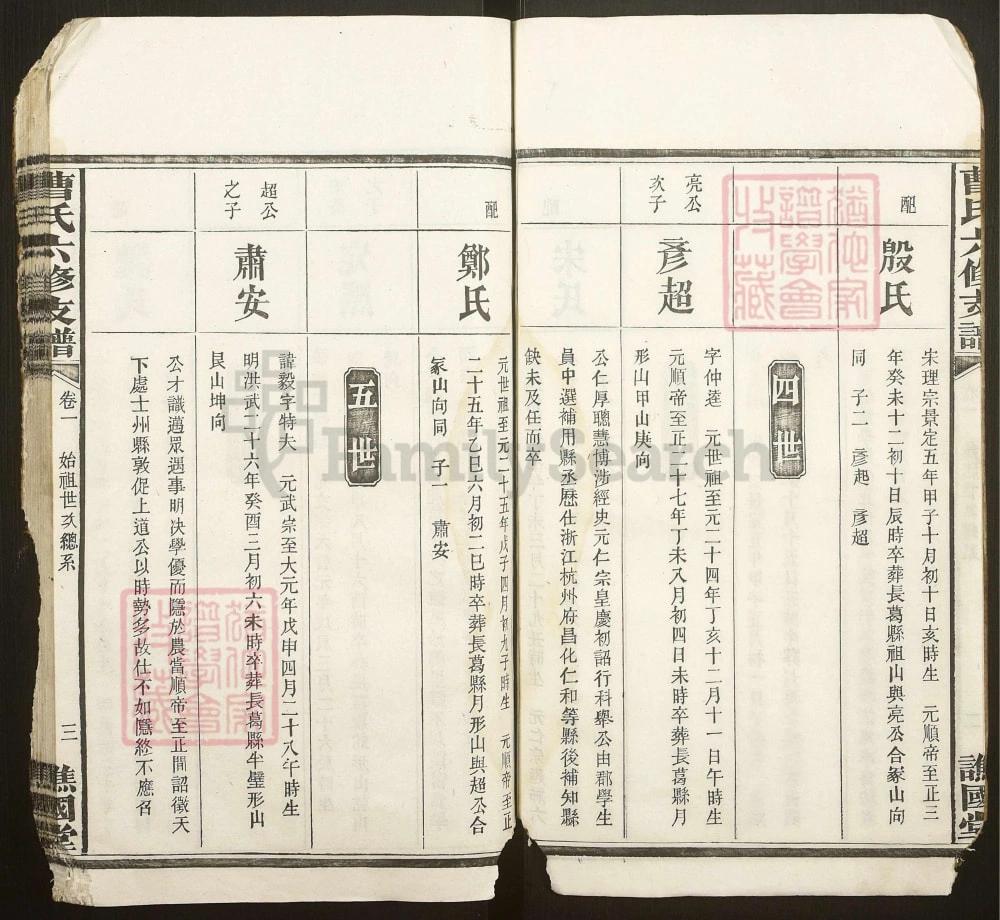 曹氏六修支譜
譙國堂
配
殷氏
宋理宗景定五年甲子十月初十日亥時生 元順帝至正三
年癸未十二初十日辰時卒葬長葛縣祖山與亮公合冢山向
同 子二 彦起 彦超
四世
亮公
次子
彥超
字仲逵 元世祖至元二十四年丁亥十二月十一日午時生
元順帝至正二十七年丁未八月初四日未時卒葬長葛縣月
形山甲山庚向
公仁厚聰慧博涉經史元仁宗皇慶初詔行科舉公由郡學生
員中選補用縣丞歷仕浙江杭州府昌化仁和等縣後補知縣
缺未及任而卒
配
鄭氏
元世祖至元二十五年戊子四月初九子時生 元順帝至正
二十五年乙巳六月初二巳時卒葬長葛縣月形山與超公合
冢山向同 子一 肅安
五世
超公
之子
肅安
諱毅字特夫 元武宗至大元年戊申四月二十八午時生
明洪武二十六年癸酉三月初六未時卒葬長葛縣牛璧形山
艮山坤向
公才識邁眾遇事明决學優而隱於農當順帝至正間詔徵天
下處士州縣敦促上道公以時勢多故仕不如隱終不應召
曹氏六修支譜
卷一 始祖世次總系
三
譙國堂
FamilySearch